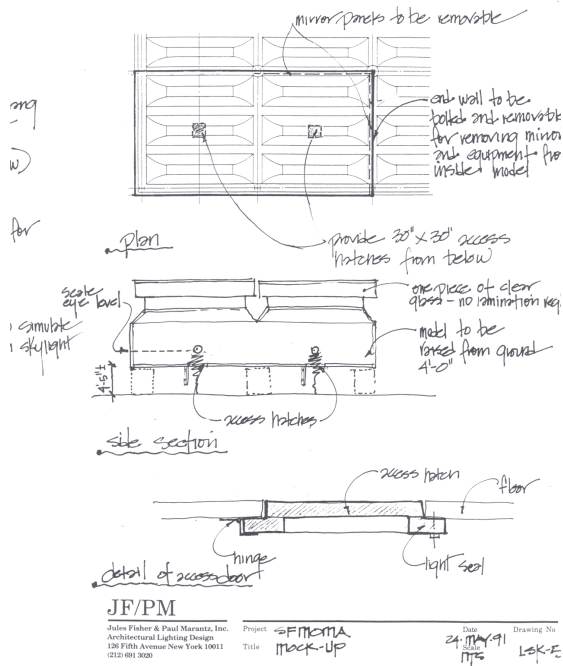 mirror panels to be removable
end wall to be
bolted and removable
for removing mirror
and equipment from
inside model
w)
for
plan
provide 30" x 30" access
hatches from below
scale
eye level
simulate
skylight
one piece of clear
glass - no lamination req
model to be
raised from ground
4'-0"
4'-5" ±
access hatches
side section
access hatch
floor
hinge
light seal
detail of access door
JF/PM
Jules Fisher & Paul Marantz, Inc.
Architectural Lighting Design
126 Fifth Avenue New York 10011
(212) 691 3020
Project SFMOMA
Title MOCK-UP
Date
24·MAY·91
Scale
NTS
Drawing No
LSK-5